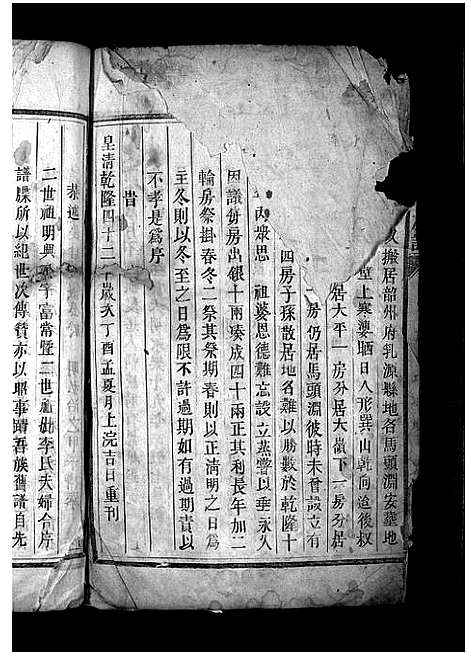 搬居韶州府乳源縣地名馬頭淵安墓地
壁上寒婆晒日人形巽山乾向迨後叔
居大平一房分居大嶺下一房分居
房仍居馬頭淵彼時未曾設立有
四房子孫散居地名難以勝數於乾隆十
丙眾思 祖婆恩德難忘設立蒸嘗以垂永久
因議每房出銀十兩湊成四十兩正其利長年加二
輪房祭掛春冬二祭其祭期春則以正清明之日為
主冬則以冬至之日為限不許過期如有過期責以
不孝是為序
昔
皇清乾隆四十二年歲次丁酉孟夏月上浣吉日重刊
二世祖明興孫字富常暨二世祖妣李氏夫婦合序
譜牒所以紀世次傳贊亦以昭事蹟吾族舊譜自先